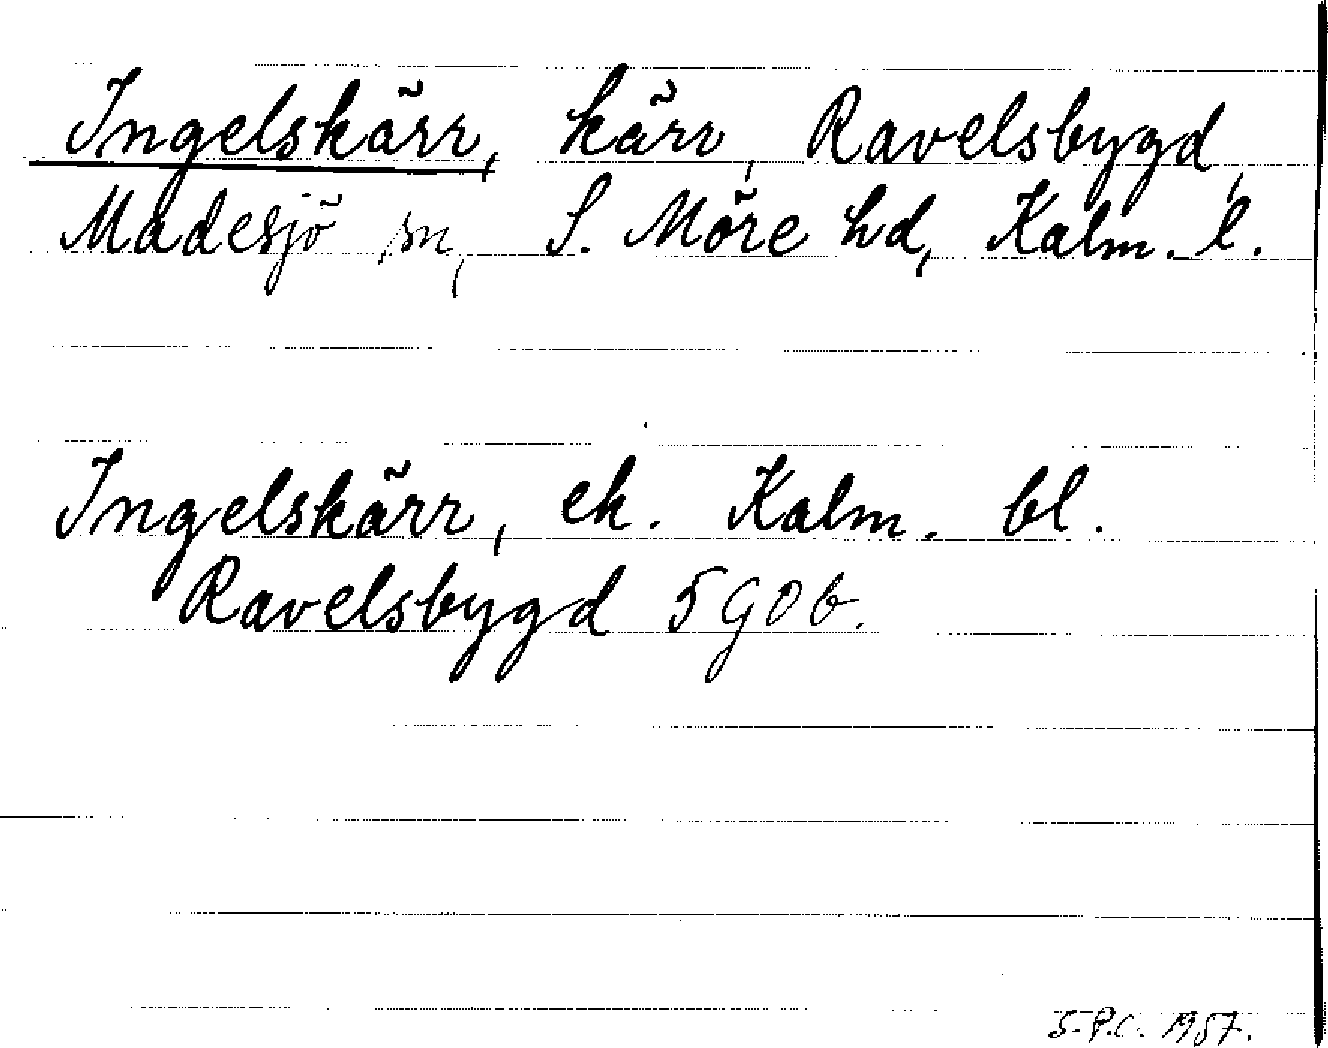 Ingelskärr, kärr, Ravelsbygd,
Madesjö sn, S. Möre hd, Kalm. l.
Ingelskärr, ek. Kalm. bl.
Ravelsbygd 5 G 0 b.
S.P.C. 1957.